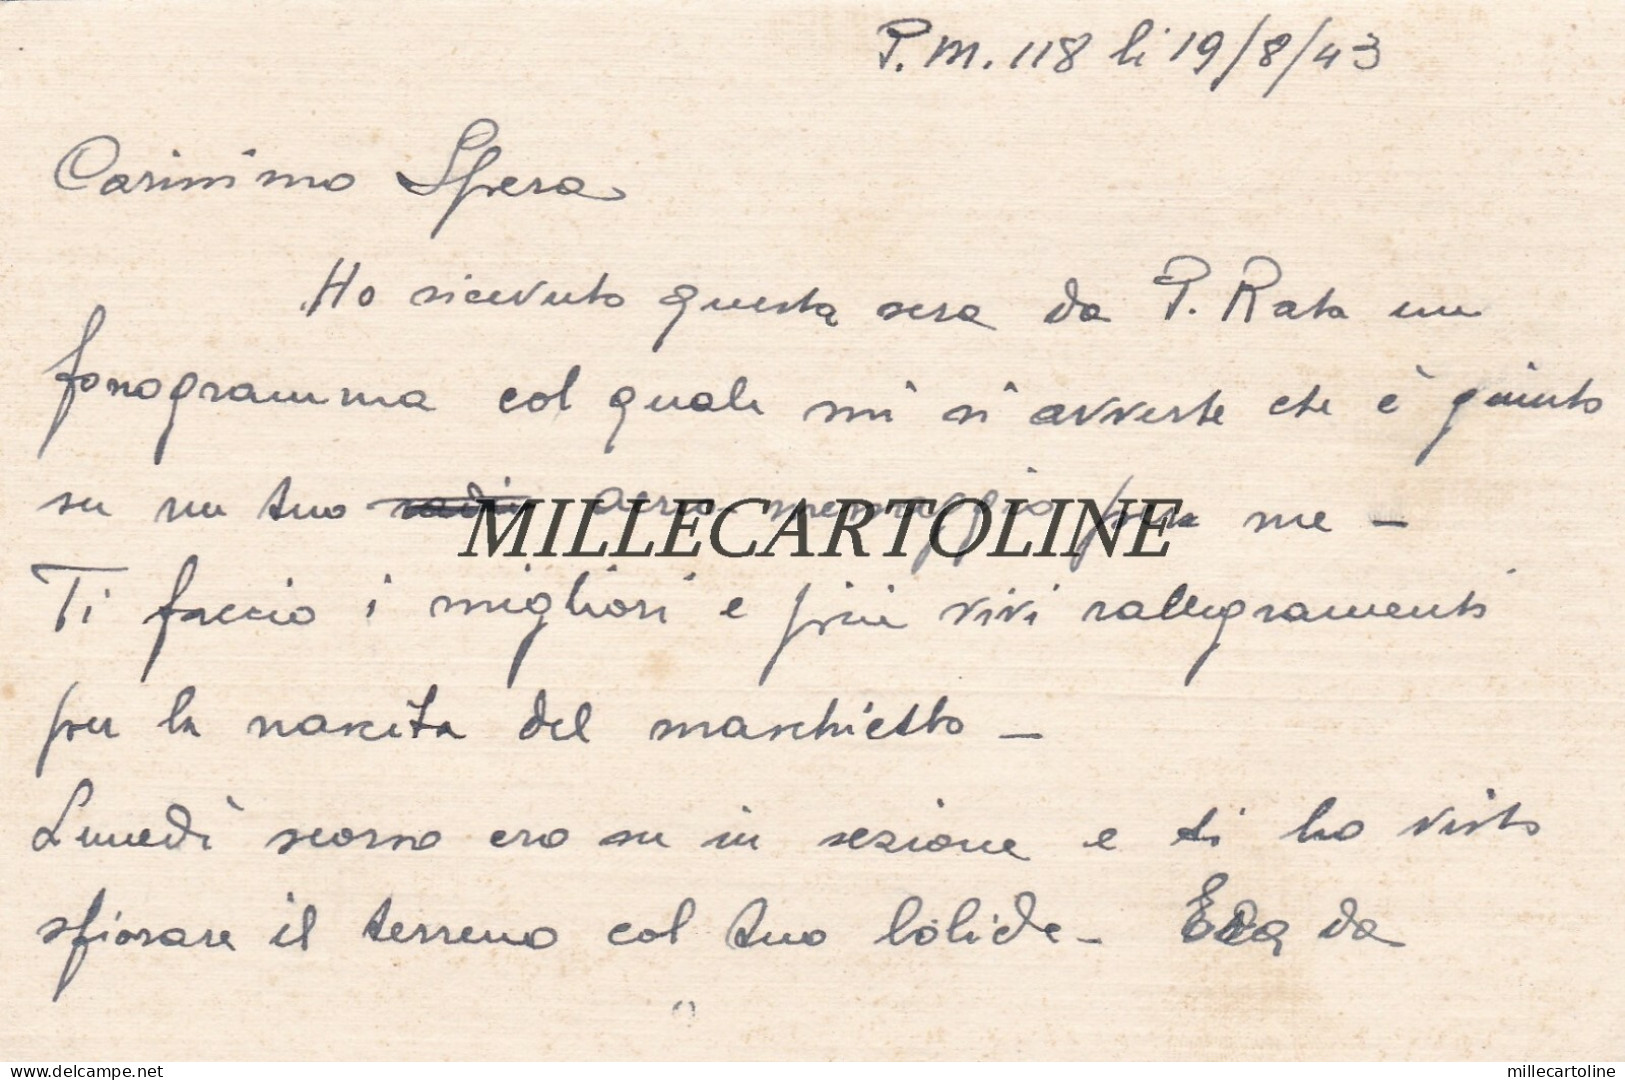 P.M. 118 li 19/8/43
Carissimo Spera
Ho ricevuto questa sera da P. Rata un
fonogramma col quale mi si avverte che è giunto
su un tuo radio aereo messaggio per me -
MILLECARTOLINE
Ti faccio i migliori e più vivi rallegramenti
per la nascita del maschietto -
Lunedì scorso ero su in sezione e ti ho visto
sfiorare il terreno col tuo bolide - Era da
delcampe.net
millecartoline